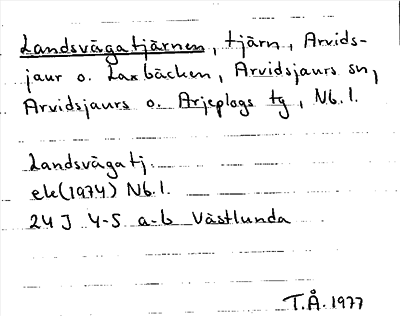 Landsvägatjärnen, tjärn, Arvids-
jaur o. Laxbäcken, Arvidsjaurs sn,
Arvidsjaurs o. Arjeplogs tg, Nb.l.
Landsvägatj.
ek(1974) Nb.l.
24J 4-5 a-b Västlunda
T.Å. 1977